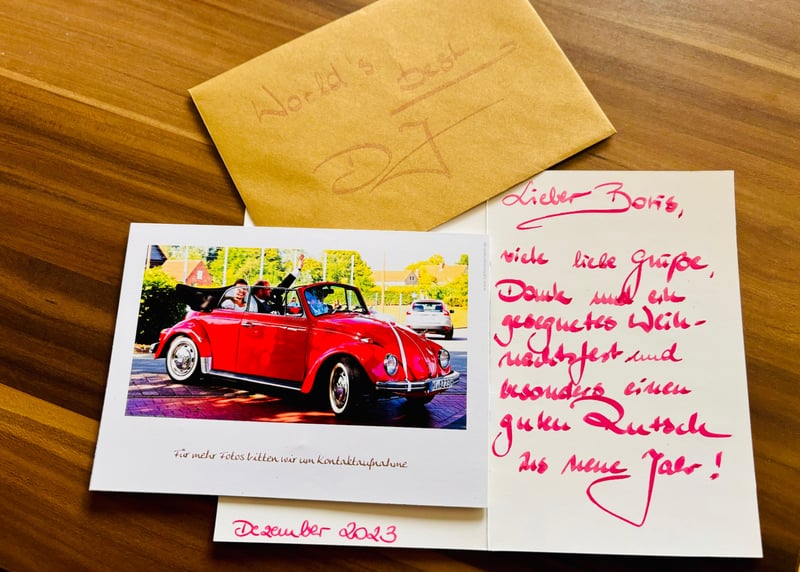 World's best
DJ
Für mehr Fotos bitten wir um Kontaktaufnahme
Dezember 2023
Lieber Boris,
viele liebe Grüße,
Dank und ein
gesegnetes Weih-
nachtsfest und
besonders einen
guten Rutsch
ins neue Jahr!